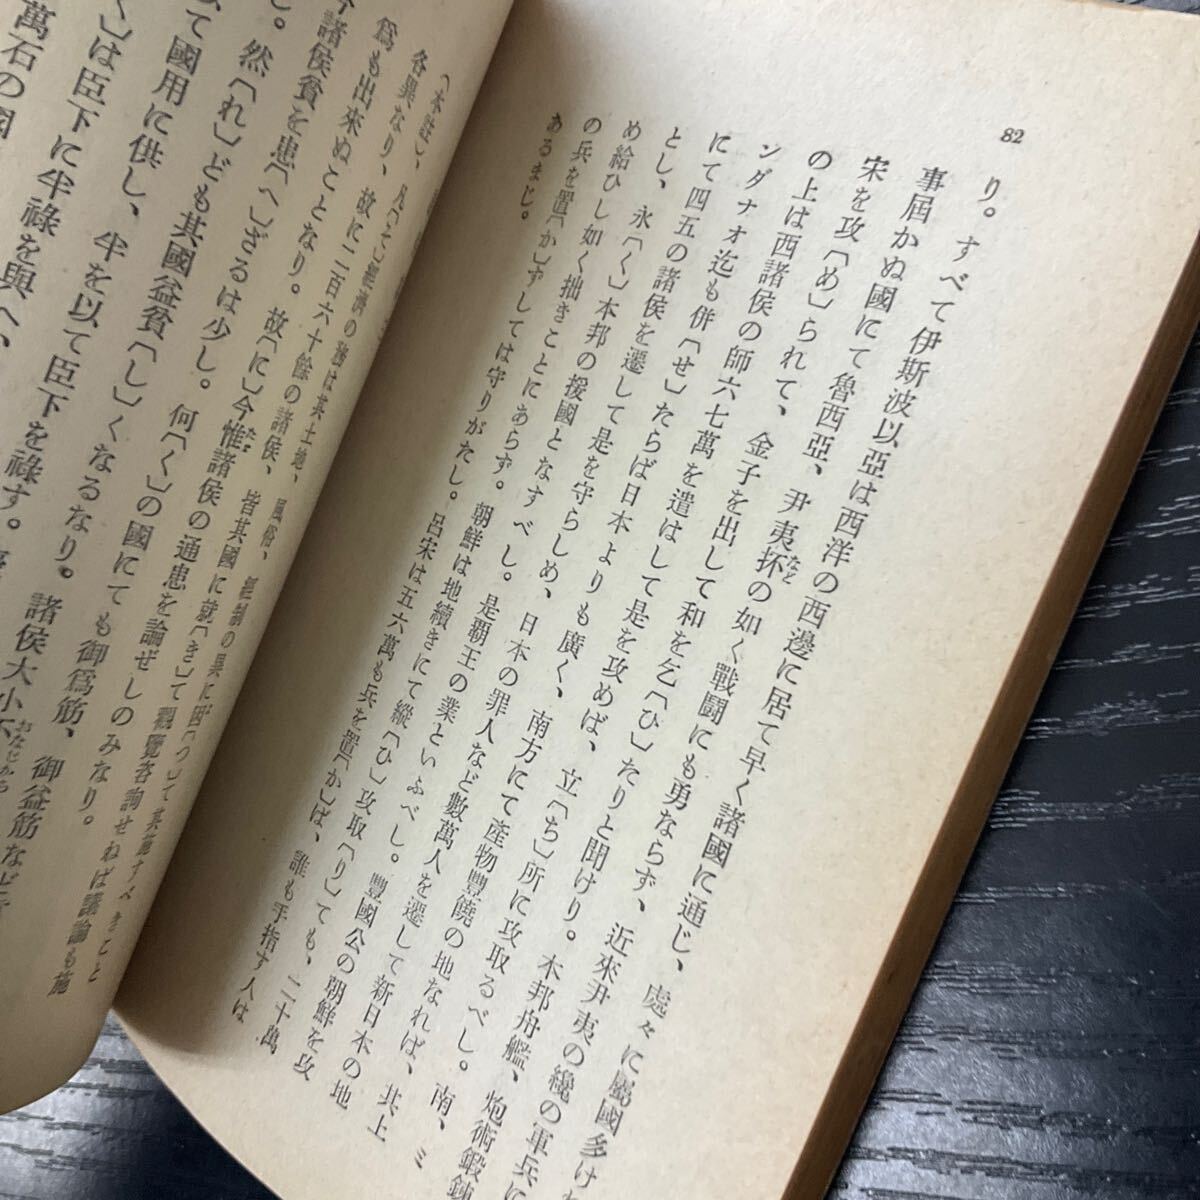 82
り。すべて伊斯波以亞は西洋の西邊に居て早く諸國に通じ、處々に屬國多けれ
事屆かぬ國にて魯西亞、尹夷抔の如く戰鬪にも勇ならず、近來尹夷の纔の軍兵に
宋を攻〔め〕られて、金子を出して和を乞〔ひ〕たりと聞けり。本邦舟艦、炮術鍛錬
の上は西諸侯の師六七萬を遣はして是を攻めば、立〔ち〕所に攻取るべし。南、ミ
ンダナオ迄も併〔せ〕たらば日本よりも廣く、南方にて産物豐饒の地なれば、其上
にて四五の諸侯を遷して是を守らしめ、日本の罪人など數萬人を遷して新日本の地
とし、永〔く〕本邦の援國となすべし。是覇王の業といふべし。豐國公の朝鮮を攻
め給ひし如く拙きことにあらず。朝鮮は地續きにて縱〔ひ〕攻取〔り〕ても、二十萬
の兵を置〔か〕ずしては守りがたし。呂宋は五六萬も兵を置〔か〕ば、誰も手指す人は
あるまじ。
〔本註〕、凡〔そ〕經濟の施は其土地、風俗、經制の異に因〔つ〕て其施すべきこと
各異なり、故に二百六十餘の諸侯、皆其國に就〔き〕て觀覽咨詢せねば議論も施
爲も出來ぬことなり。故〔に〕今惟諸侯の通患を論ぜしのみなり。
今諸侯貧を患〔へ〕ざるは少し。何〔く〕の國にても御爲筋、御益筋など
し。然〔れ〕ども其國益貧〔し〕くなるなり。諸侯大小不
て國用に供し、半を以て臣下を祿す。
く〕は臣下に半祿を與へ、
萬石の國